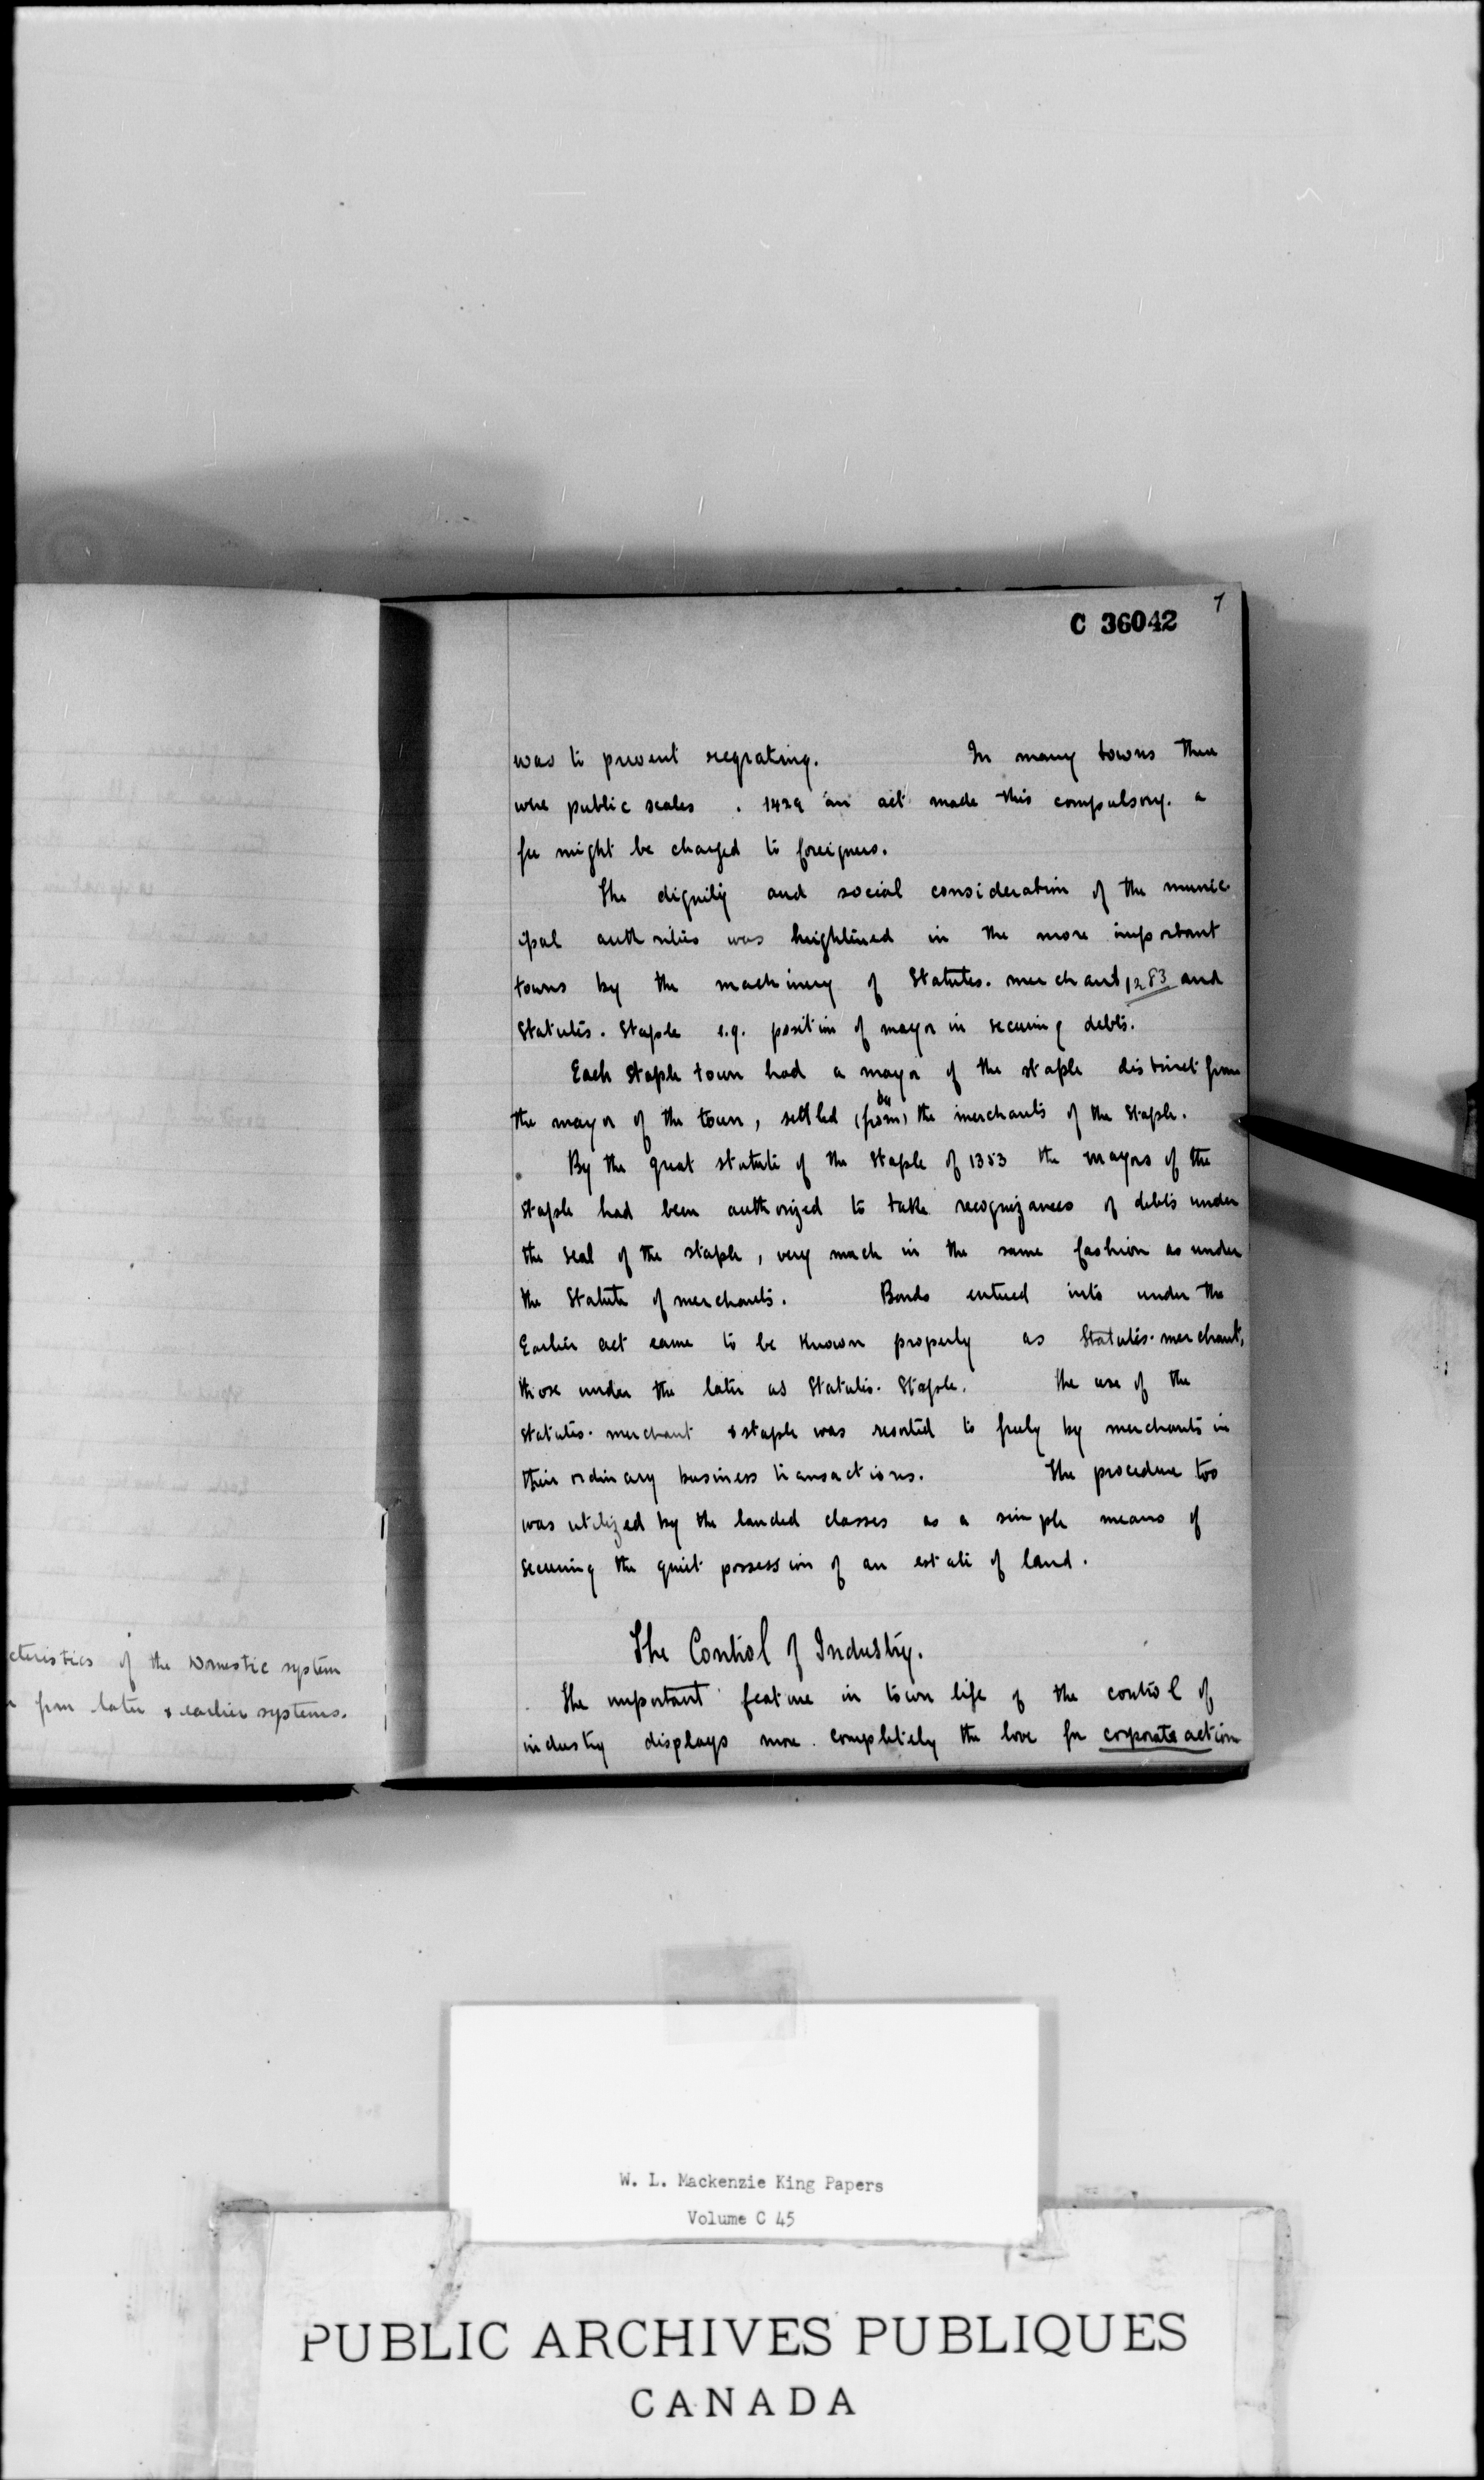 7
C 36042
was to prevent regrating. In many towns there
were public scales. 1429 an act made this compulsory. a
fee might be charged to foreigners.
The dignity and social consideration of the munic-
ipal authorities was heightened in the more important
towns by the machinery of Statutes-merchant 1283 and
Statutes-Staple e.g. position of mayor in securing debts.
Each Staple town had a mayor of the staple distinct from
by
the mayor of the town, settled (from) the merchants of the Staple.
By the great statute of the Staple of 1353 the mayors of the
Staple had been authorized to take recognizances of debts under
the seal of the staple, very much in the same fashion as under
the Statute of merchants. Bonds entered into under the
Earlier act came to be known properly as Statutes-merchant,
those under the later as Statutes-Staple. The use of the
statutes-merchant & staple was resorted to freely by merchants in
their ordinary business transactions. The procedure too
was utilized by the landed classes as a simple means of
securing the quiet possession of an estate of land.
The Control of Industry.
The important feature in town life of the control of
industry displays more completely the love for corporate action
cteristics of the Domestic system
from later & earlier systems.
W. L. Mackenzie King Papers
Volume C 45
PUBLIC ARCHIVES PUBLIQUES
CANADA